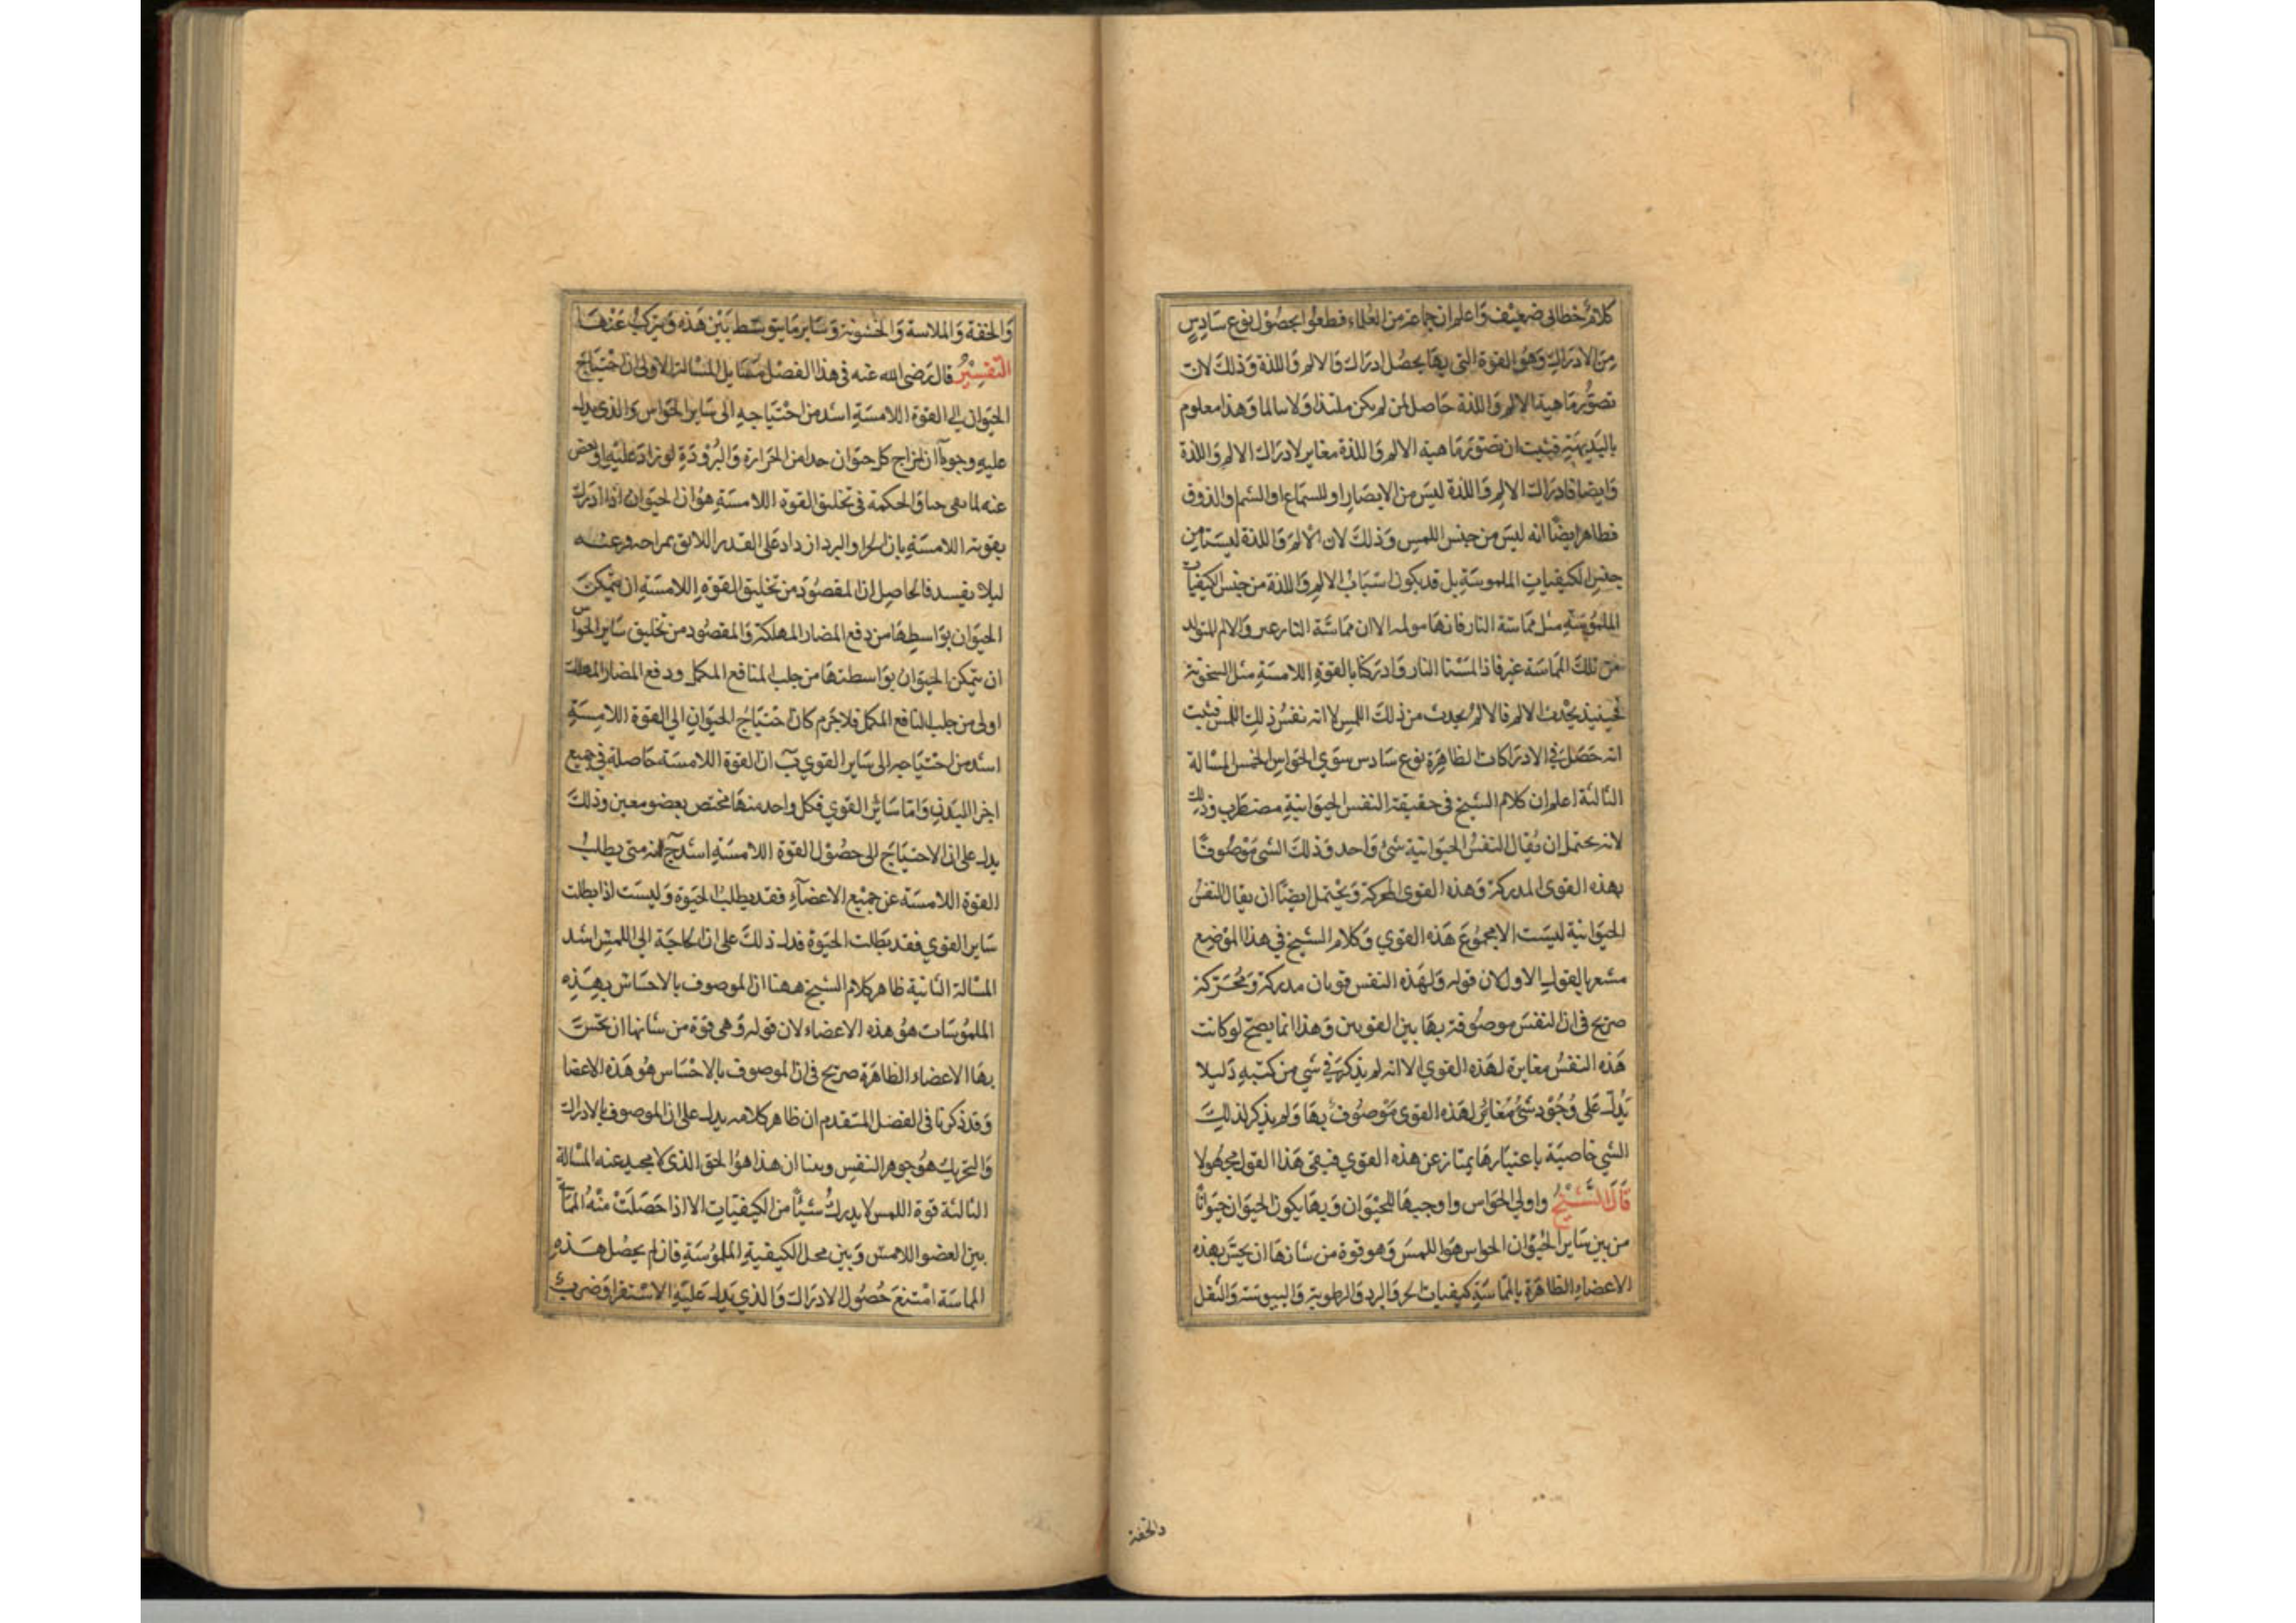 كلام خطابي ضعيف واعلم ان جماعة من العلماء قطعوا بحصول نوع سادس
من الادراك وهو القوة التي بها يحصل ادراك الالم واللذة وذلك لان
تصور ماهية الالم واللذة حاصل لمن لم يكن ملتذا ولا سالما وهذا معلوم
بالبديهية فثبت ان تصور ماهية الالم واللذة مغاير لادراك الالم واللذة
وايضا فادراك الالم واللذة ليس من الابصار او للسماع او الشم والذوق
فظاهر ايضا انه ليس من جنس اللمس وذلك لان الالم واللذة ليستا من
جنس الكيفيات الملموسة بل قد يكون اسباب الالم واللذة من جنس الكيفيات
الملموسة مثل مماسة النار فانها مولمه الا ان مماسة النار غير والالم المتولد
من تلك المماسة غير فاذا لمسنا النار وادركنا بالقوة اللامسة مثل السخونة
فحينيذ يحدث الالم فالالم يحدث من ذلك اللمس لا انه نفس ذلك اللمس فثبت
انه حصل في الادراكات الظاهرة نوع سادس سوي الحواس الخمس المسالة
الثالثة اعلم ان كلام الشيخ في حقيقة النفس الحيوانية مضطرب وذلك
لانه يحتمل ان يقال النفس الحيوانية شئ واحد وذلك الشي موصوفا
بهذه القوى المدركة وهذه القوى المحركة ويحتمل ايضا ان يقال النفس
الحيوانية ليست الا مجموع هذه القوي وكلام الشيخ في هذا الموضع
مشعر بالقول الاول لان قوله ولهذه النفس قوتان مدركة ومحركة
صريح في ان النفس موصوفة بها بين القوتين وهذا انما يصح لو كانت
هذه النفس مغايرة لهذه القوي الا انه لم يذكر في شي من كتبه دليلا
يدل على وجود شئ مغاير لهذه القوى موصوف بها ولم يذكر لذلك
الشي خاصية باعتبارها يمتاز عن هذه القوي فبقى هذا القول مجهولا
قال الشيخ واولي الحواس واوجبها للحيوان وبها يكون الحيوان حيوانا
من بين ساير الحيوان الحواس هو اللمس وهو قوة من شانها ان يحس بهذه
الاعضاء الظاهرة بالمماسة كيفيات الحر والبرد والرطوبة واليبوسة والثقل
والخفة
والخفة والملاسة والخشونة وساير ما يتوسط بين هذه ويتركب عنها
التفسير قال رضى الله عنه في هذا الفصل مسايل المسالة الاولى ان احتياج
الحيوان الى القوة اللامسة اشد من احتياجه الى ساير الحواس والذي يدل
عليه وجوه آ ان لمزاج كل حيوان حدا من الحرارة والبرودة لو زاد عليه او نقص
عنه لما بقي حيا والحكمة في تخليق القوة اللامسة هو ان الحيوان اذا ادرك
بقوته اللامسة بان الحر او البرد ازداد على القدر اللايق بمزاجه فر عنه
ليلا يفسد فالحاصل ان المقصود من تخليق القوة اللامسة ان يتمكن
الحيوان بواسطها من دفع المضار المهلكة والمقصود من تخليق ساير الحواس
ان يتمكن الحيوان بواسطتها من جلب المنافع المكمل ودفع المضار المهلك
اولى من جلب المنافع المكمل فلا جرم كان احتياج الحيوان الى القوة اللامسة
اشد من احتياجه الى ساير القوي ب ان القوة اللامسة حاصلة في جميع
اجزا البدن واما ساير القوي فكل واحد منها مختص بعضو معين وذلك
يدل على ان الاحتياج الى حصول القوة اللامسة اشد ج انه متى يطلب
القوة اللامسة عن جميع الاعضاء فقد يطلب الحيوة وليست اذا بطلت
ساير القوي فقد بطلت الحيوة فدل ذلك على ان الحاجة الى اللمس اشد
المسالة الثانية ظاهر كلام الشيخ ههنا ان الموصوف بالاحساس بهذه
الملموسات هو هذه الاعضاء لان قوله وهي قوة من شانها ان تحس
بها الاعضاء الظاهرة صريح في ان الموصوف بالاحساس هو هذه الاعضا
وقد ذكرنا في الفصل المتقدم ان ظاهر كلامه يدل على ان الموصوف بالادراك
والتحريك هو جوهر النفس وبينا ان هذا هو الحق الذي لا محيد عنه المسالة
الثالثة قوة اللمس لا يدرك شيئا من الكيفيات الا اذا حصلت منه المماسة
بين العضو اللامس وبين محل الكيفية الملموسة فان لم يحصل هذه
المماسة امتنع حصول الادراك والذي يدل عليه الاستقرا وضرب